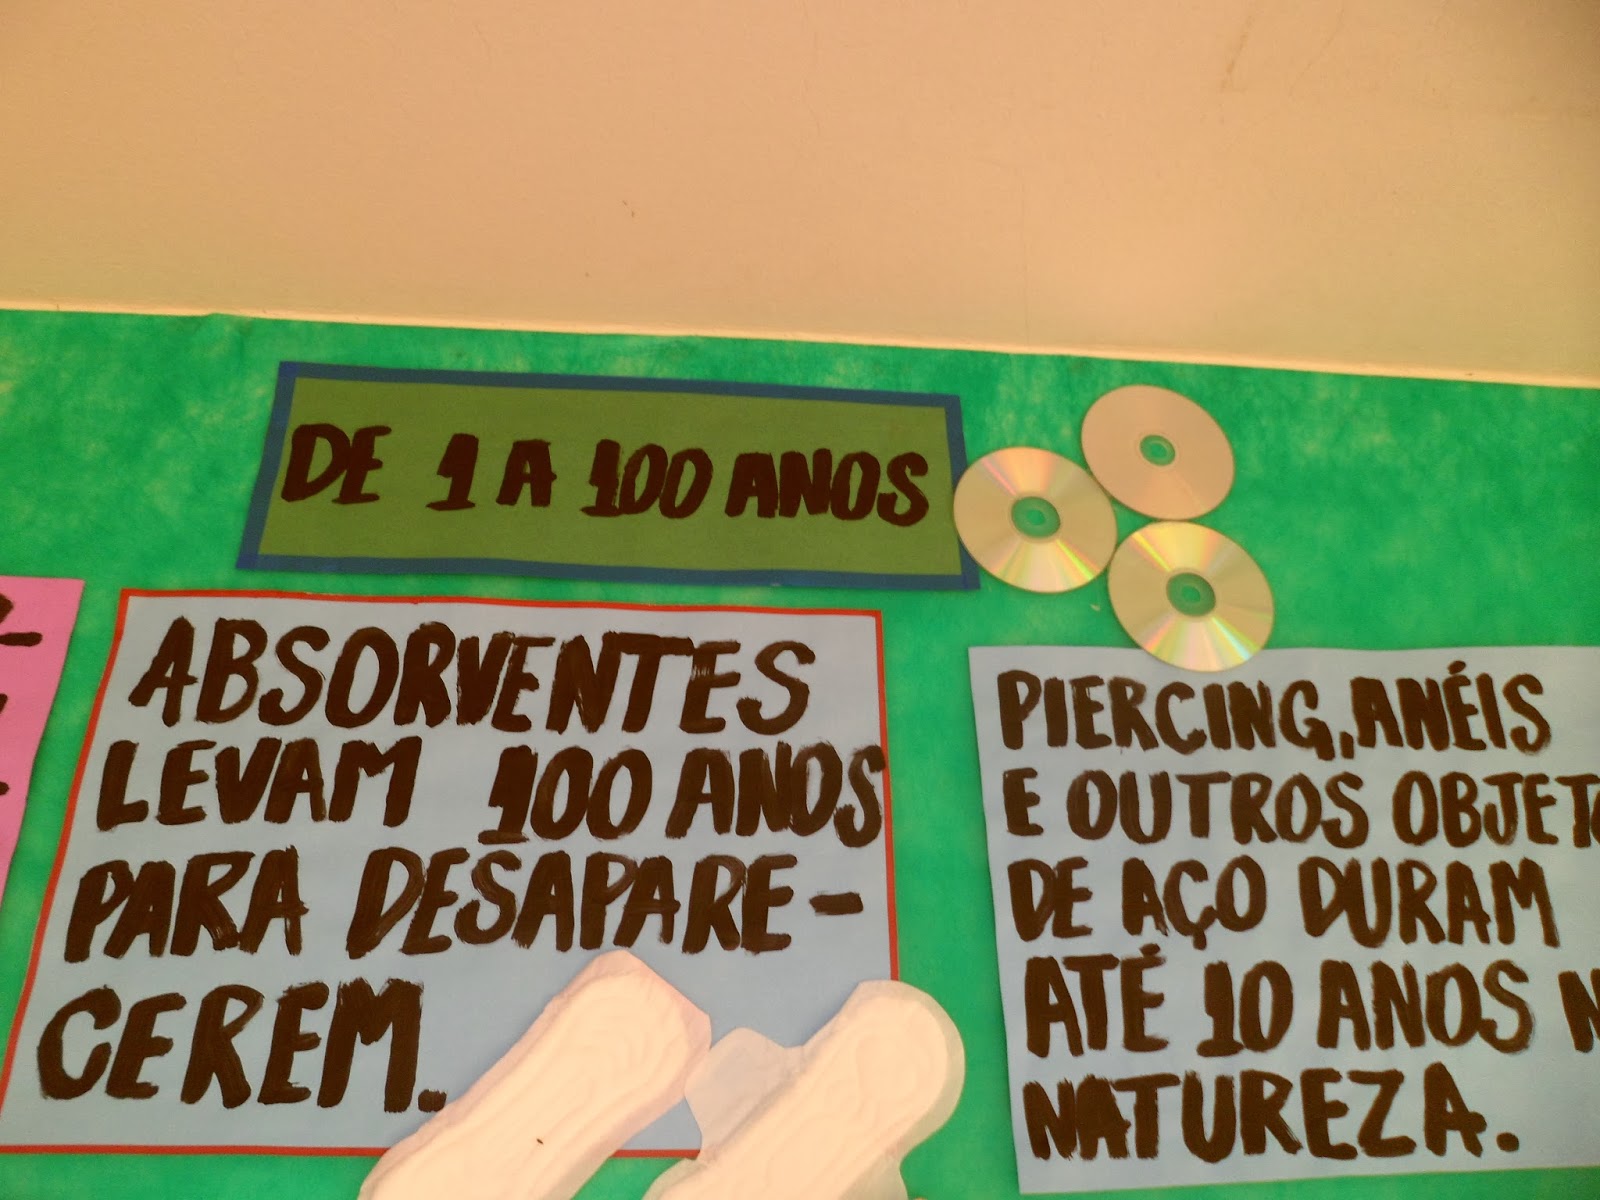 DE 1 A 100 ANOS
ABSORVENTES
LEVAM 100 ANOS
PARA DESAPARE-
CEREM.
PIERCING, ANÉIS
E OUTROS OBJETO
DE AÇO DURAM
ATÉ 10 ANOS N
NATUREZA.